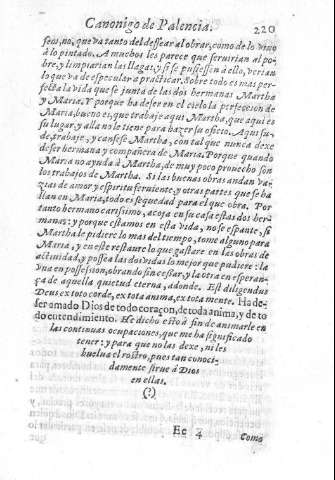 Canonigo de Palencia.
220
sens,no, que va tanto del dessear al obrar, como de lo vivo
à lo pintado. A muchos les parece que servirian al po-
bre, y limpiarian las llagas, y si se pusiessen à ello, verian
lo que va de especular a practicar. Sobre todo es mas per-
fecta la vida que se junta de las dos hermanas Martha
y Maria. Y porque ha de ser en el cielo la perfeccion de
Maria, bueno es, que trabaje aqui Martha, que aqui es
su lugar, y alla no le tiene para hazer su oficio. Aqui su-
de, trabaje, y canse se Martha, con tal que nunca dexe
de ser hermana y compañera de Maria. Porque quando
Maria no ayuda à Martha, de muy poco provecho son
los trabajos de Martha. Si las buenas obras andan va-
zias de amor y espiritu ferviente, y otras partes que se ha
llan en Maria, todo es sequedad para el que obra. Por
tanto hermano carissimo, acoja en su casa estas dos her-
manas: y porque estamos en esta vida, no se espante, si
Martha le pidiere lo mas del tiempo, tome alguno para
Maria, y en este restante lo que gastare en las obras de
actividad, y possea las dos vidas lo mejor que pudiere: la
vna en possession, obrando sin cessar, y la otra en esperan-
ça de aquella quietud eterna, adonde. Est diligendus
Deus ex toto corde, ex tota anima, ex tota mente. Ha de
ser amado Dios de todo coraçon, de toda anima, y de to
do entendimiento. He dicho esto à fin de animarle en
las continuas ocupaciones, que me ha significado
tener: y para que no las dexe, ni les
buelua el rostro, pues tan conoci-
damente sirue à Dios
en ellas.
(?)
Ee 4
Como